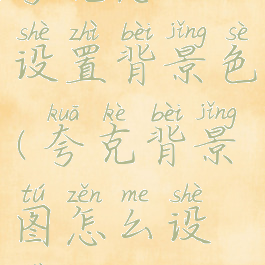 shè zhì bèi jǐng sè
设置背景色
kuā kè bèi jǐng
(夸克背景
tú zěn me shè
图怎么设